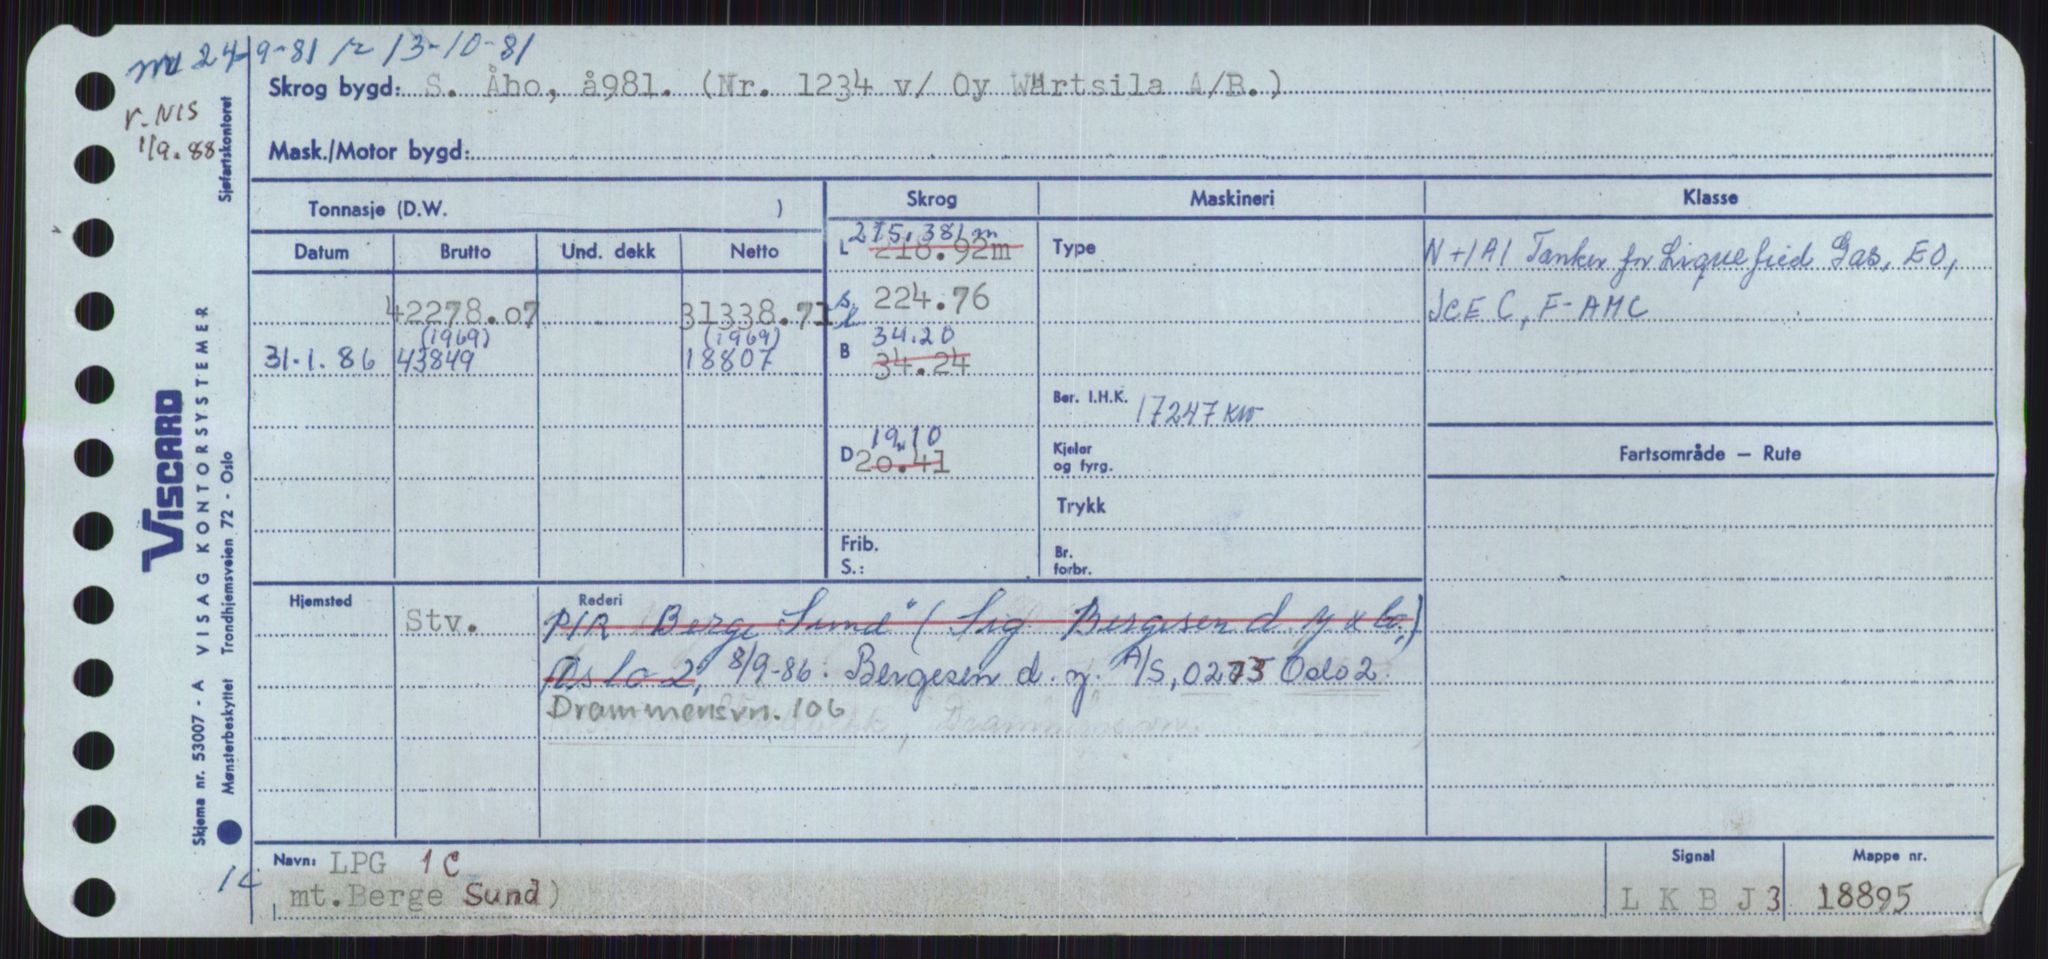 md 24-9-81 r 13-10-81
r. NIS
1/9.88
Skrog bygd: S. Åho, å981. (Nr. 1234 v/ Oy Wärtsila A/B.)
Mask./Motor bygd:
Tonnasje (D.W. )
Skrog Maskineri Klasse
Datum Brutto Und. dekk Netto
L 215.381m
218.92m
Type
N +1A1 Tanker for Liquefied Gas, EO,
42278.07 31338.71
224.76
ICE C, F-AMC
(1969) (1969)
31.1.86 43849 18807
B 34.20
34.24
Ber. I.H.K. 17247 KW
D 19.10
20.41
Kjeler
og fyrg.
Fartsområde — Rute
Trykk
Frib.
S.:
Br.
forbr.
Hjemsted Stv. Rederi
P/R Berge Sund" (Sig Bergesen d.y & Co.,)
Oslo 2, 8/9-86: Bergesen d. y. A/S, 0273 Oslo 2.
Drammensvn. 106
Navn: LPG 1C
mt. Berge Sund)
Signal
L K B J 3
Mappe nr.
18895
14
Sjøfartskontoret
VISCARD
VISAG KONTORSYSTEMER
Skjema nr. 53007 - A
Mønsterbeskyttet Trondhjemsveien 72 - Oslo